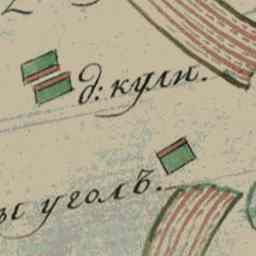 д: кули.
уголъ.